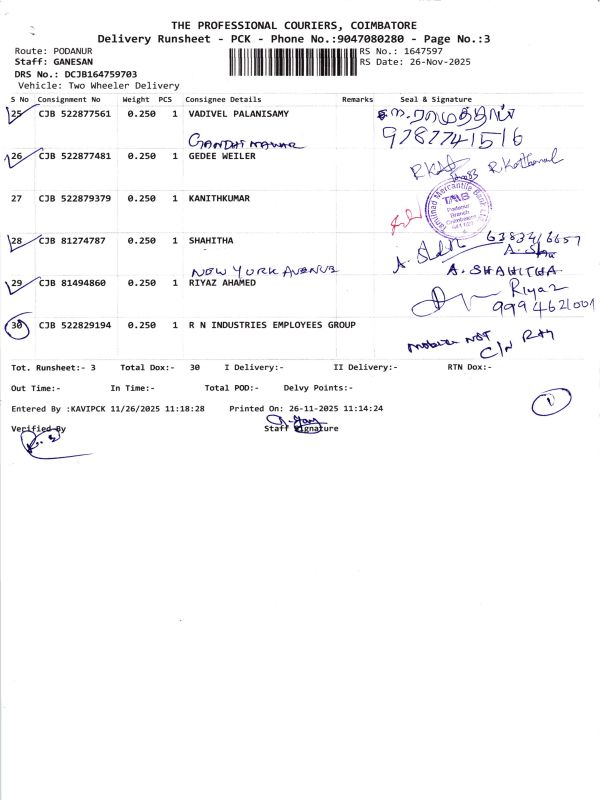 THE PROFESSIONAL COURIERS, COIMBATORE
Delivery Runsheet - PCK - Phone No.:9047080280 - Page No.:3
Route: PODANUR
RS No.: 1647597
Staff: GANESAN
RS Date: 26-Nov-2025
DRS No.: DCJB164759703
Vehicle: Two Wheeler Delivery
S No Consignment No Weight PCS Consignee Details Remarks Seal & Signature
25 CJB 522877561 0.250 1 VADIVEL PALANISAMY
9787741516
26 CJB 522877481 0.250 1 GEDEE WEILER
27 CJB 522879379 0.250 1 KANITHKUMAR
Tamilnad Mercantile Bank Ltd
TMB
Podanur
Branch
Coimbatore
28 CJB 81274787 0.250 1 SHAHITHA
A. SHAHITHA
NEW YORK AVENUE
29 CJB 81494860 0.250 1 RIYAZ AHAMED
Riyaz
9994621001
30 CJB 522829194 0.250 1 R N INDUSTRIES EMPLOYEES GROUP
NOT
Tot. Runsheet:- 3 Total Dox:- 30 I Delivery:- II Delivery:- RTN Dox:-
Out Time:- In Time:- Total POD:- Delvy Points:-
Entered By :KAVIPCK 11/26/2025 11:18:28 Printed On: 26-11-2025 11:14:24
1
Verified By
Staff Signature